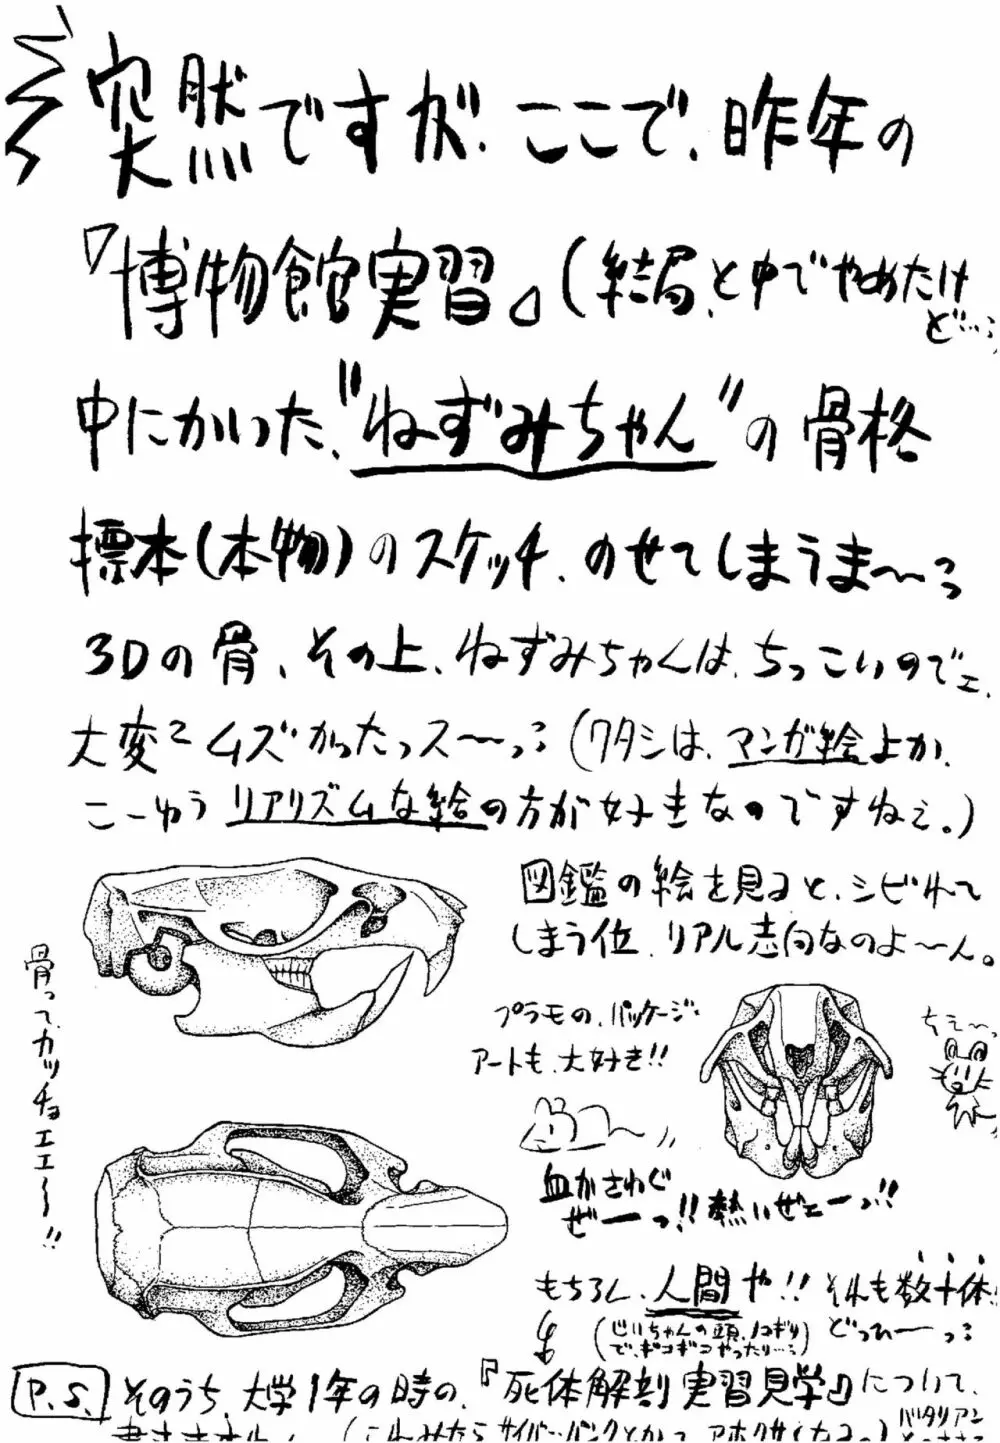 突然ですが、ここで、昨年の
『博物館実習』(結局、と中でやめたけど…)
中にかいた、"ねずみちゃん"の骨格
標本(本物)のスケッチ、のせてしまうま〜っ
3Dの骨、その上、ねずみちゃんは、ちっこいのでェ、
大変でムズかったっス〜っ(ワタシは、マンガ絵よか、
こーゆうリアリズムな絵の方が好きなのですねェ。)
図鑑の絵を見ると、シビれて
しまう位、リアル志向なのよ〜ん。
骨って、カッチョエエ〜!!
プラモの、パッケージ
アートも、大好き!!
ちえ〜っ
血がさわぐ
ぜーっ!!熱いぜェーっ!!
もちろん、人間や!!それも数十体!!
(じいちゃんの頭、ノコギリ
で、ギコギコやったり…)
どっひーっ
P.S. そのうち、大学1年の時の、『死体解剖実習見学』について、
バタリアン